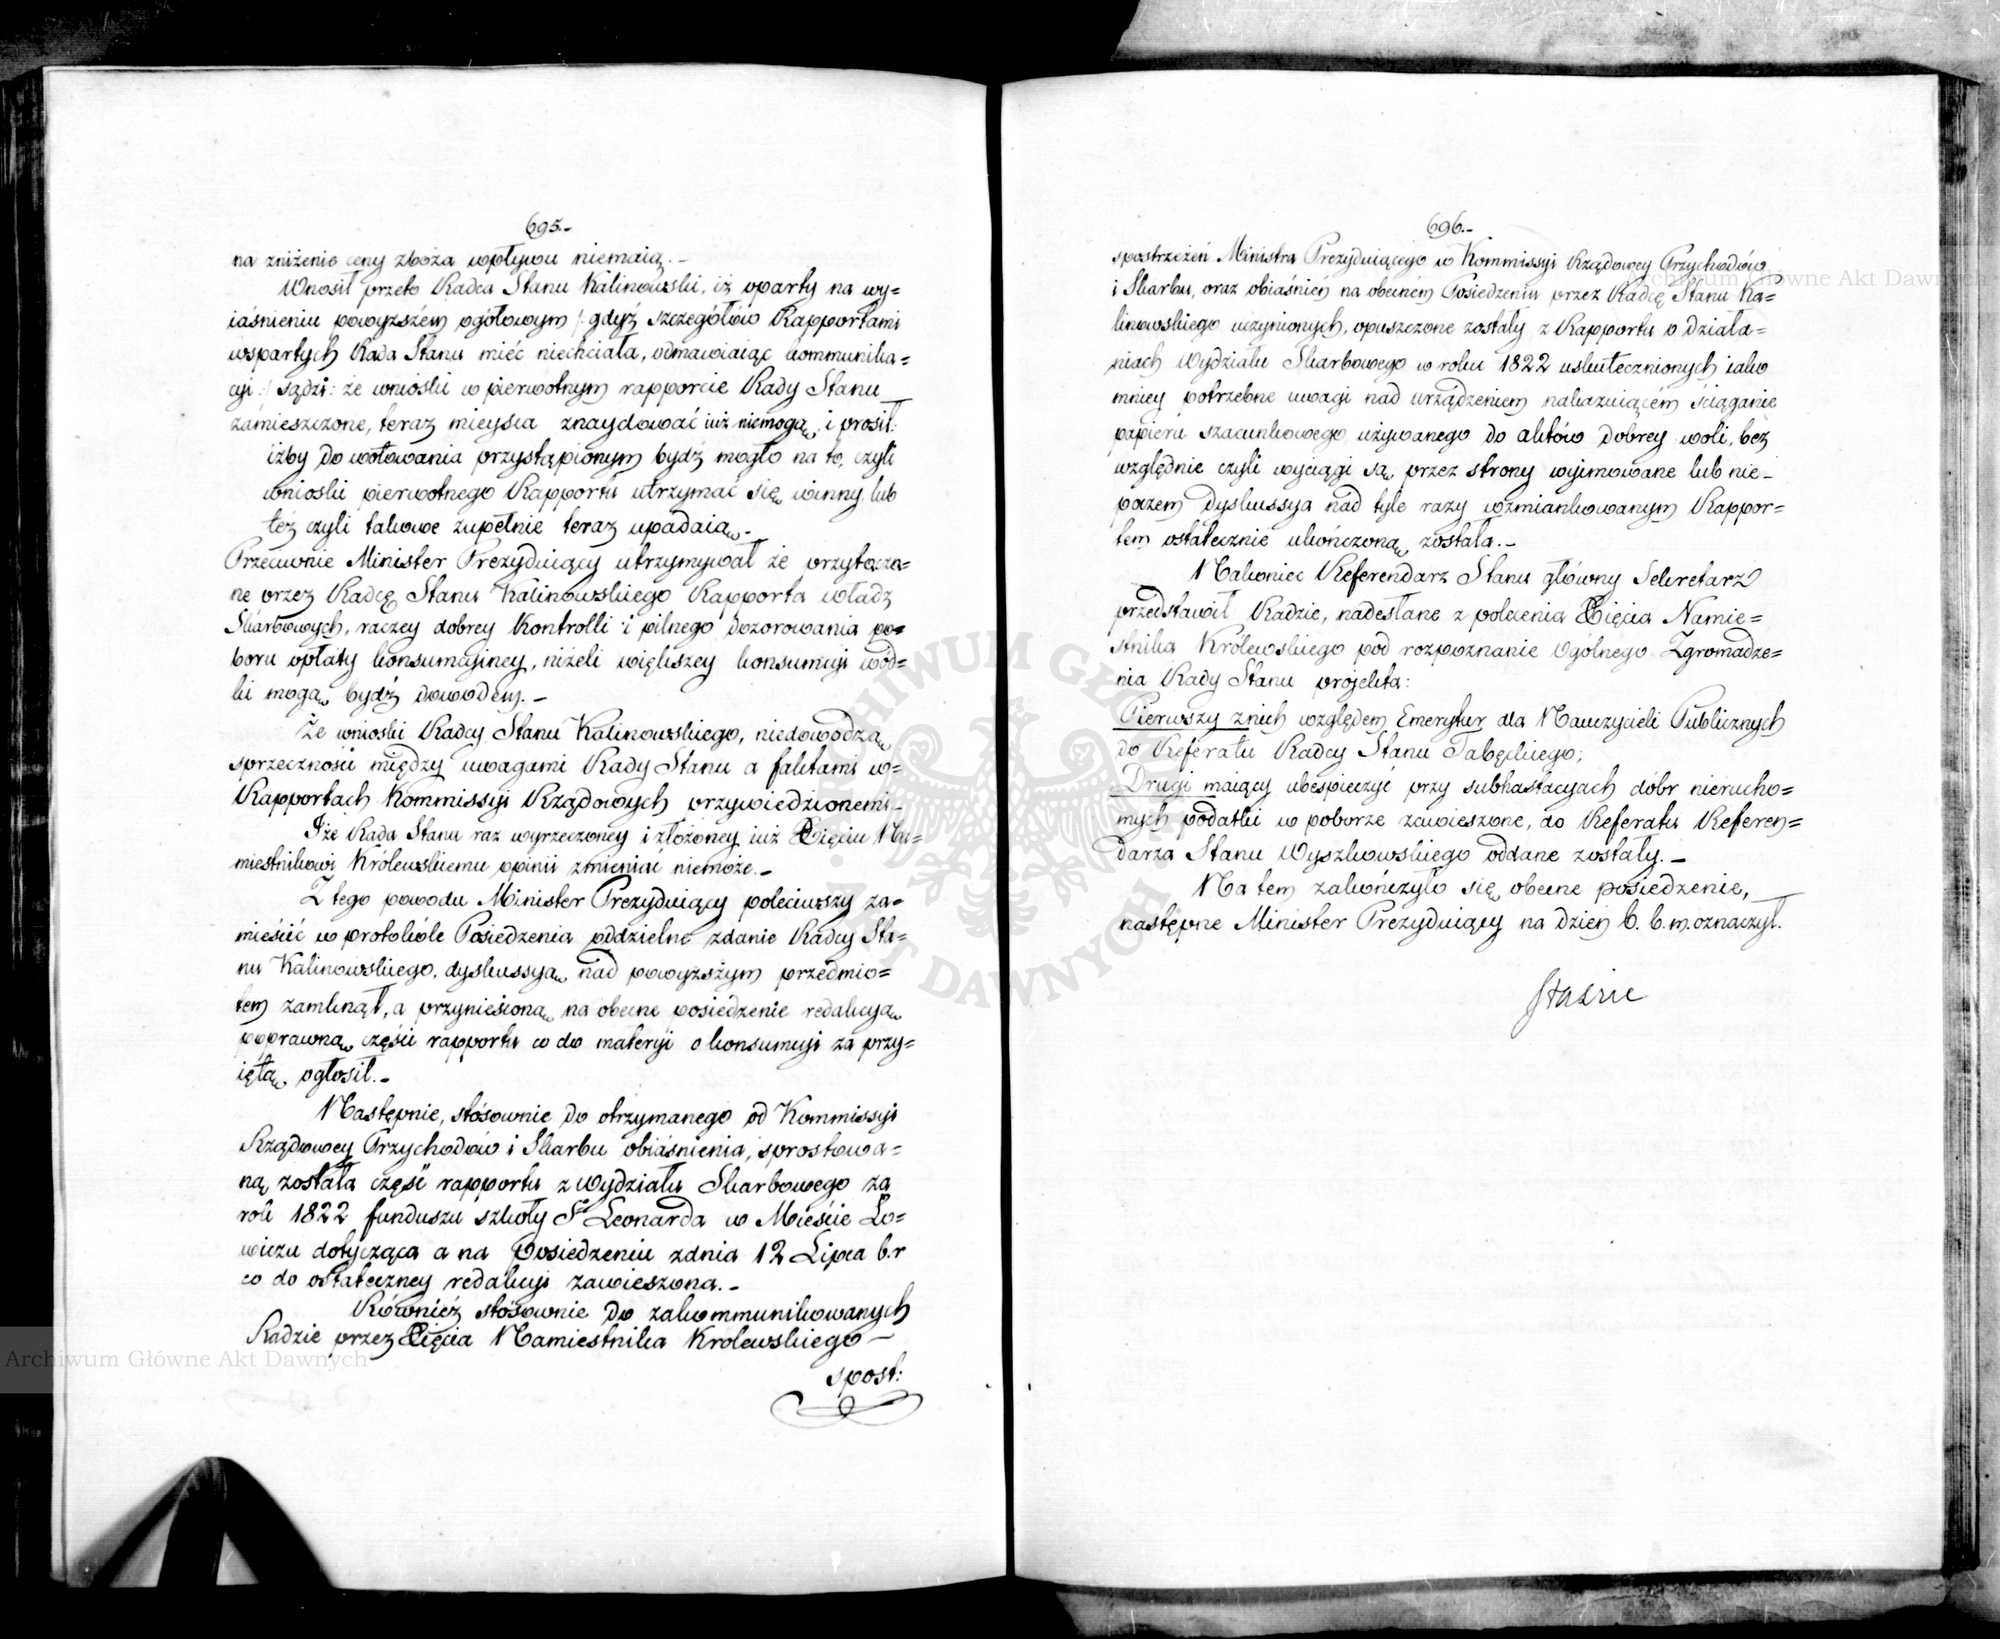 695.-
na zniżenie ceny zboża wpływu niemaią.-
Wnosił przeto Radca Stanu Kalinowski, iż oparty na wy=
iaśnieniu powyższém ogółowym /: gdyż szczegółów Rapportami
wspartych Rada Stanu mieć niechciała, odmawiaiąc kommunika=
cyi :/ sądzi: że wnioski w pierwotnym rapporcie Rady Stanu
zamieszczone, teraz mieysca znaydować iuż niemogą, i prosił:
iżby do wotowania przystąpionym bydź mogło na to, czyli
wnioski pierwotnego Rapportu utrzymać się winny, lub
też czyli takowe zupełnie teraz upadaią.-
Przeciwnie Minister Prezyduiący utrzymywał że przytacza=
ne przez Radcę Stanu Kalinowskiego Rapporta władz
Skarbowych, raczey dobrey Kontrolli i pilnego dozorowania po=
boru opłaty konsumcyiney, niżeli większey konsumcyi wód=
ki mogą bydź dowodem.-
Że wnioski Radcy Stanu Kalinowskiego, niedowodzą
sprzeczności między uwagami Rady Stanu a faktami w=
Rapportach Kommissyi Rządowych przywiedzionemi.-
Iże Rada Stanu raz wyrzeczoney i złożoney iuż Xięciu Na=
miestnikowi Królewskiemu opinii zmieniać niemoże.-
Z tego powodu Minister Prezyduiący poleciwszy za=
mieścić w protokóle Posiedzenia oddzielne zdanie Radcy Sta=
nu Kalinowskiego, dyskussyą nad powyższym przedmio=
tem zamknął, a przyniesioną na obecne posiedzenie redakcyą
poprawną części rapportu co do materyi o konsumcyi za przy=
iętą ogłosił.-
Następnie, stósownie do otrzymanego od Kommissyi
Rządowey Przychodów i Skarbu obiaśnienia, sprostowa=
ną została część rapportu z Wydziału Skarbowego za
rok 1822 funduszu szkoły St Leonarda w Mieście Ło=
wiczu dotycząca a na Posiedzeniu z dnia 12 Lipca b.r
co do ostateczney redakcyi zawieszona.-
Również stósownie do zakommunikowanych
Radzie przez Xięcia Namiestnika Królewskiego -
spost:
696.-
spostrzeżeń Ministra Prezyduiącego w Kommissyi Rządowey Przychodów
i Skarbu, oraz obiaśnień na obecném Posiedzeniu przez Radcę Stanu Ka=
linowskiego uczynionych, opuszczone zostały z Rapportu o działa=
niach Wydziału Skarbowego w roku 1822 uskutecznionych iako
mniey potrzebne uwagi nad urządzeniem nakazuiącém ściąganie
papieru szacunkowego używanego do aktów dobrey woli, bez
względnie czyli wyciągi są, przez strony wyjmowane lub nie -
poczem dyskussya nad tyle razy wzmiankowanym Rappor=
tem ostatecznie ukończoną została.-
Nakoniec Referendarz Stanu główny Sekretarz
przedstawił Radzie, nadesłane z polecenia Xięcia Namie=
stnika Królewskiego pod rozpoznanie Ogólnego Zgromadze=
nia Rady Stanu projekta:
Pierwszy z nich względem Emerytur dla Nauczycieli Publicznych
do Referatu Radcy Stanu Tabęckiego;
Drugi maiący ubespieczyć przy subhastacyach dóbr nierucho=
mych podatki w poborze zawieszone, do Referatu Referen=
darza Stanu Wyszkowskiego oddane zostały.-
Na tem zakończyło się obecne posiedzenie,
następne Minister Prezyduiący na dzień 6. b.m. oznaczył.
Staszic
ARCHIWUM GŁÓWNE AKT DAWNYCH
Archiwum Główne Akt Dawnych
Archiwum Główne Akt Dawnych